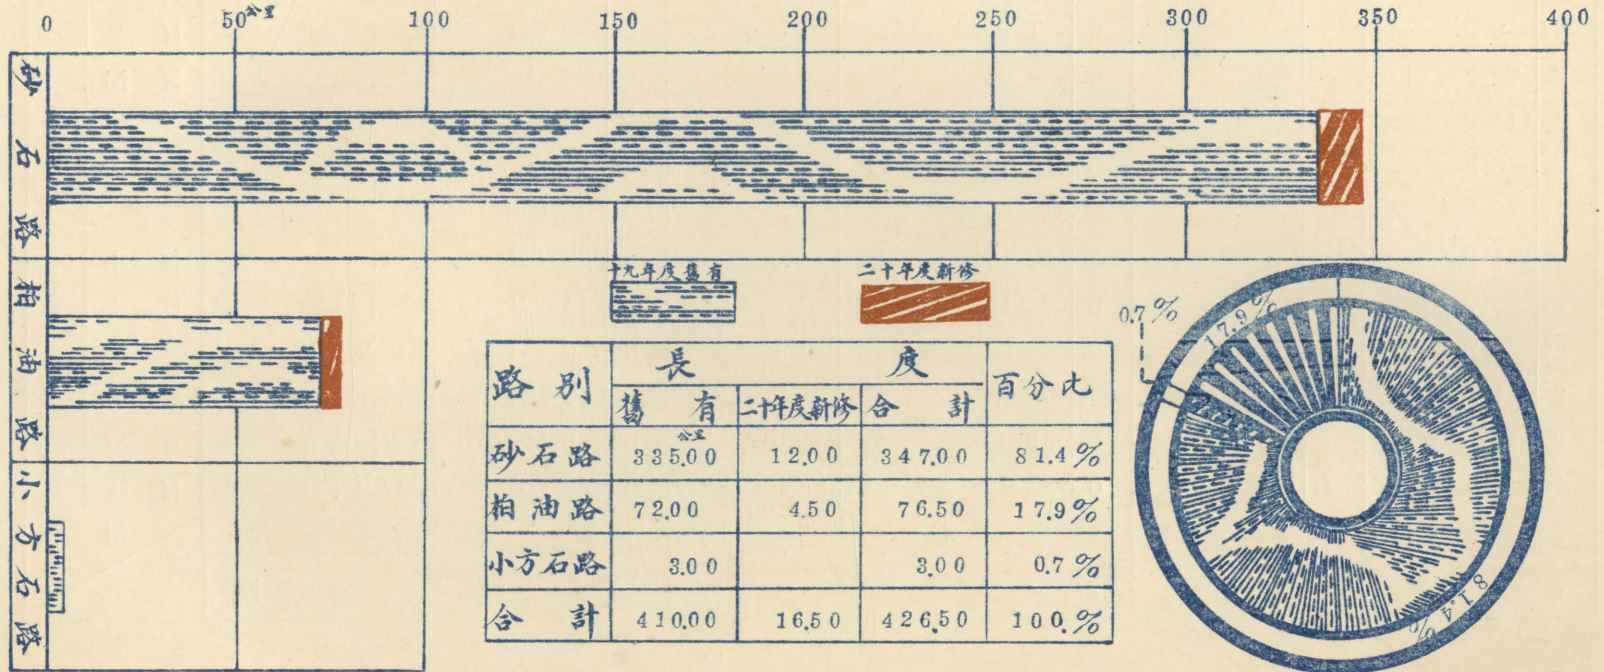 0 50公里 100 150 200 250 300 350 400
砂石路
柏油路
小方石路
十九年度舊有 二十年度新修
路別 長度 百分比
舊有 二十年度新修 合計
公里
砂石路 335.00 12.00 347.00 81.4%
柏油路 72.00 4.50 76.50 17.9%
小方石路 3.00 3.00 0.7%
合計 410.00 16.50 426.50 100.%
0.7%
17.9%
81.4%